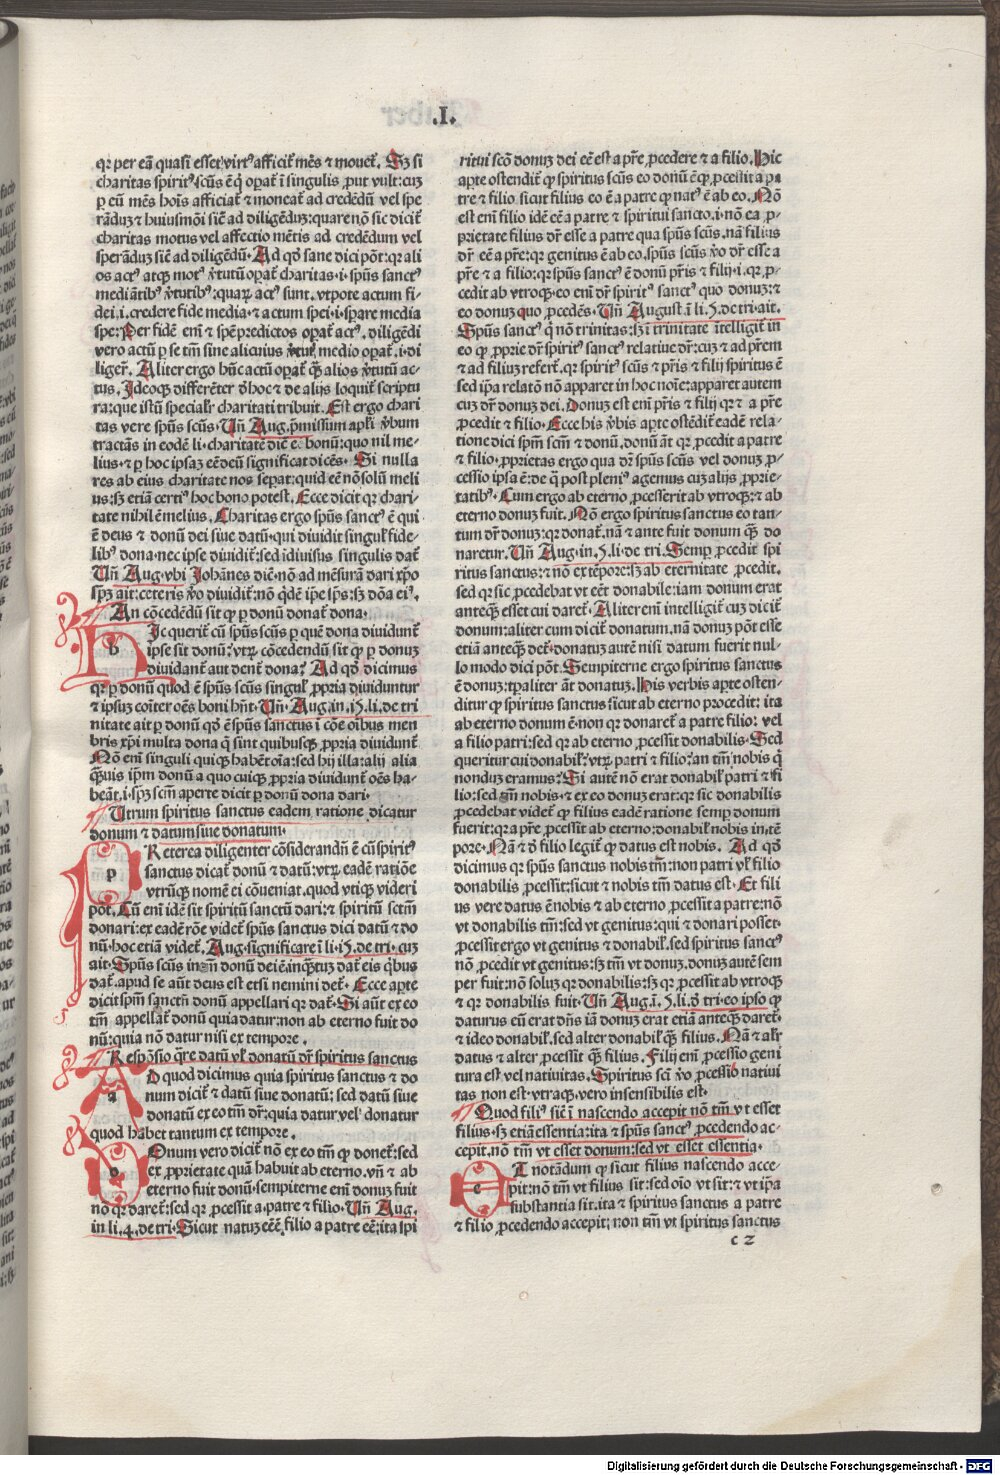 .I.
qꝛ per eã quasi esset virtꝰ afficiť mẽs ⁊ moueť. Sȝ si
charitas spiritꝰ scũs ẽ q̇ opať ĩ singulis ꝓut vult: cuȝ
ꝑ eũ mẽs hoĩs afficiať ⁊ moueať ad credẽdũ vel spe
rãduȝ ⁊ huiusmõi sicẽ ad diligẽduȝ: quare nõ sic diciť
charitas motus vel affectio mẽtis ad credẽdum vel
sperãduȝ sicẽ ad diligẽdũ. Ad qð sane dici põt: qꝛ ali
os actꝰ atqȝ motꝰ ꝟtutũ opať charitas .i. spũs sanctꝰ
mediãtibꝰ ꝟtutibꝰ: quaꝝ actꝰ sunt. vtpote actum fi-
dei .i. credere fide media. ⁊ actum spei .i. spare media
spe: Per fidẽ enĩ ⁊ spẽ predictos opať actꝰ. diligẽdi
vero actũ ꝑ se tm̃ sine alicuius ꝟtuť medio opať. i. di
ligeŕ. Aliter ergo hũc actũ opať q̃ȝ alios ꝟtutũ ac-
tus. Ideoqȝ differẽter ð hoc ⁊ de alijs loquiť scriptu
ra: que istũ specialiť charitati tribuit. Est ergo chari
tas vere spũs scũs. Uñ Aug. p̃missum apľi ꝟbum
tractãs in eodẽ li. charitatẽ dic̃ eẽ bonũ: quo nil me-
lius. ⁊ ꝑ hoc ipsaȝ eẽ deũ significat dicẽs. Si nulla
res ab eius charitate nos sepať: quid eẽ nõ solũ meli
us: sȝ etiã certiꝰ hoc bono potest. Ecce dicit qꝛ chari
tate nihil ẽ melius. Charitas ergo spũs sanctꝰ ẽ qui
ẽ deus ⁊ donũ dei siue datũ. qui diuidit singuľ fide-
libꝰ dona. nec ipse diuidiť: sed ĩdiuisus singulis dať
Uñ Aug. vbi Johãnes dic̃. nõ ad mẽsurã dari xp̃o
sp̃ȝ ait: ceteris ꝟo diuidiť: nõ q̇dẽ ip̃e sp̃s: sȝ dõa eiꝰ.
An cõcedẽdũ sit ꝙ ꝑ donũ donať dona.
b
Ic queriť cũ spũs scũs ꝑ quẽ dona diuidunť
ipse sit donũ: vtꝝ cõcedendũ sit ꝙ ꝑ donuȝ
diuidanť aut denť dona? Ad qð dicimus
qꝛ ꝑ donũ quod ẽ spũs scũs singuľ ꝓpria diuiduntur
⁊ ipsuȝ cõiter oẽs boni hñt. Uñ Aug. in .15. li. de tri
nitate ait ꝑ donũ qð ẽ spũs sanctus ĩ cõe oĩbus mem
bris xp̃i multa dona q̃ sint quibusqȝ ꝓpria diuidunť
Nõ enĩ singuli quiqȝ habẽt oĩa: sed hij illa: alij alia
q̃ȝuis ip̃m donũ a quo cuiqȝ ꝓpria diuidunť oẽs ha-
beãt .i. sp̃ȝ scm̃. aperte dicit ꝑ donũ dona dari.
Utrum spiritus sanctus eadem ratione dicatur
donum ⁊ datum siue donatum.
p
Reterea diligenter cõsiderandũ ẽ cũ spiritꝰ
sanctus dicať donũ ⁊ datũ: vtꝝ eadẽ ratiõe
vtrũqȝ nomẽ ei cõueniat. quod vtiqȝ videri
põt. Cũ enĩ idẽ sit spiritũ sanctũ dari: ⁊ spiritũ sctm̃
donari: ex eadẽ rõe videť spũs sanctus dici datũ ⁊ do
nũ: hoc etiã videť. Aug. significare ĩ li. 5. de tri. cuȝ
ait. Spũs scũs inqm̃ donũ dei ẽ inq̃ȝtuȝ dať eis q̇bus
dať. apud se aũt deus est etsi nemini deť. Ecce aꝑte
dicit spm̃ sanctũ donũ appellari qꝛ dať. Si aũt ex eo
tm̃ appellať donũ quia datur: non ab eterno fuit do
nũ: quia nõ datur nisi ex tempore.
Respõsio q̃re datũ vľ donatũ dr̃ spiritus sanctus
a
D quod dicimus quia spiritus sanctus ⁊ do
num diciť ⁊ datũ siue donatũ: sed datũ siue
donatũ ex eo tm̃ dr̃: quia datur vel donatur
quod habet tantum ex tempore.
d
Onum vero diciť nõ ex eo tm̃ ꝙ doneť: sed
ex ꝓprietate quã habuit ab eterno. vñ ⁊ ab
eterno fuit donũ. sempiterne enĩ donuȝ fuit
nõ qꝛ dareť: sed qꝛ ꝓcessit a patre ⁊ filio. Uñ Aug.
in li. 4. de tri. Sicut natuȝ eẽ ẽ. filio a patre eẽ: ita spi
ritui scõ donuȝ dei eẽ est a pr̃e ꝓcedere ⁊ a filio. Hic
aꝑte ostendiť ꝙ spiritus scũs eo donũ ẽ ꝙ ꝓcessit a pa
tre ⁊ filio sicut filius eo ẽ a patre ꝙ natꝰ ẽ ab eo. Nõ
est enĩ filio idẽ eẽ a patre ⁊ spiritui sancto. i. nõ ea ꝓ-
prietate filius dr̃ esse a patre qua spũs scũs. nã filius
dr̃ eẽ a pr̃e: qꝛ genitus ẽ ab eo. spũs scũs ꝟo dr̃ esse a
pr̃e ⁊ a filio: qꝛ spũs sanctꝰ ẽ donũ pr̃is ⁊ filij .i. qꝛ ꝓ-
cedit ab vtroqȝ. eo enĩ dr̃ spiritꝰ sanctꝰ quo donuȝ: ⁊
eo donuȝ quo ꝓcedẽs. Uñ August ĩ li. 5. de tri. ait.
Spũs sanctꝰ q̇ nõ trinitas: sȝ ĩ trinitate ĩtelligiť in
eo ꝙ ꝓprie dr̃ spiritꝰ sanctꝰ relatiue dr̃: cuȝ ⁊ ad pr̃em
⁊ ad filiuȝ referť. qꝛ spiritꝰ scũs ⁊ pr̃is ⁊ filij spiritus ẽ
sed ip̃a relatõ nõ apparet in hoc noĩe: apparet autem
cuȝ dr̃ donuȝ dei. Donuȝ est enĩ pr̃is ⁊ filij qꝛ ⁊ a pr̃e
ꝓcedit ⁊ filio. Ecce his ꝟbis aꝑte ostẽdiť eadẽ rela-
tione dici spm̃ scm̃ ⁊ donũ. donũ ãt qꝛ ꝓcedit a patre
⁊ filio. ꝓprietas ergo qua dr̃ spũs scũs vel donuȝ ꝓ-
cessio ipsa ẽ: de q̃ post pleniꝰ agemus cuȝ alijs ꝓprie-
tatibꝰ. Cum ergo ab eterno ꝓcesserit ab vtroqȝ: ⁊ ab
eterno donuȝ fuit. Nõ ergo spiritus sanctus eo tan-
tum dr̃ donuȝ: qꝛ donať. nã ⁊ ante fuit donum q̃ȝ do
naretur. Uñ Aug. in .5. li. de tri. Semꝑ ꝓcedit spi
ritus sanctus: ⁊ nõ ex tẽpore: sȝ ab eternitate ꝓcedit.
sed qꝛ sic ꝓcedebat vt eẽt donabile: iam donum erat
anteq̃ȝ esset cui dareť. Aliter enĩ intelligiť cuȝ diciť
donum: aliter cum diciť donatum. nã donuȝ põt esse
etiã anteq̃ȝ deť. donatuȝ autẽ nisi datum fuerit nul-
lo modo dici põt. Sempiterne ergo spiritus sanctus
ẽ donuȝ: tꝑaliter ãt donatuȝ. His verbis aꝑte osten-
ditur ꝙ spiritus sanctus sicut ab eterno procedit: ita
ab eterno donum ẽ. non qꝛ donareť a patre filio: vel
a filio patri: sed qꝛ ab eterno ꝓcessit donabilis. Sed
queritur cui donabiľ: vtꝝ patri ⁊ filio: an tm̃ nobis q̇
nonduȝ eramus? Si autẽ nõ erat donabiľ patri ⁊ fi
lio: sed tm̃ nobis. ⁊ ex eo donuȝ erat: qꝛ sic donabilis
ꝓcedebat videť ꝙ filius eadẽ ratione semꝑ donum
fuerit: qꝛ a pr̃e ꝓcessit ab eterno: donabiľ nobis in tẽ
pore. Nã ⁊ ð filio legiť ꝙ datus est nobis. Ad qð
dicimus qꝛ spũs sanctus nobis tm̃: non patri vľ filio
donabilis ꝓcessit: sicut ⁊ nobis tm̃ datus est. Et fili
us vere datus ẽ nobis ⁊ ab eterno ꝓcessit a patre: nõ
vt donabilis tm̃: sed vt genitus: qui ⁊ donari posset.
ꝓcessit ergo vt genitus ⁊ donabiľ. sed spiritus sanctꝰ
nõ ꝓcedit vt genitus: sȝ tm̃ vt donuȝ. donuȝ autẽ sem
per fuit: nõ soluȝ qꝛ donabilis: sȝ qꝛ ꝓcessit ab vtroqȝ
⁊ qꝛ donabilis fuit. Uñ Aug. ĩ .5. li. ð tri. eo ipso ꝙ
daturus eũ erat dñs iã donuȝ erat etiã anteq̃ȝ dareť.
⁊ ideo donabiľ. sed alter donabiľ q̃ȝ filius. Nã ⁊ alr̃
datus ⁊ alter ꝓcessit q̃ȝ filius. Filij enĩ ꝓcessio geni
tura est vel natiuitas. Spiritus sc̃i ꝟo ꝓcessio natiui
tas non est. vtraqȝ. vero insensibilis est.
Quod filiꝰ sicẽ ĩ nascendo accepit nõ tm̃ vt esset
filius. sȝ etiã essentia: ita ⁊ spũs sanctꝰ ꝓcedendo ac-
cepit. nõ tm̃ vt esset donum: sed vt esset essentia.
e
T notãdum ꝙ sicut filius nascendo acce-
pit: nõ tm̃ vt filius sit: sed oĩo vt sit: ⁊ vt ip̃a
substantia sit. ita ⁊ spiritus sanctus a patre
⁊ filio ꝓcedendo accepit: non tm̃ vt spiritus sanctus
c 2
Digitalisierung gefördert durch die Deutsche Forschungsgemeinschaft - DFG